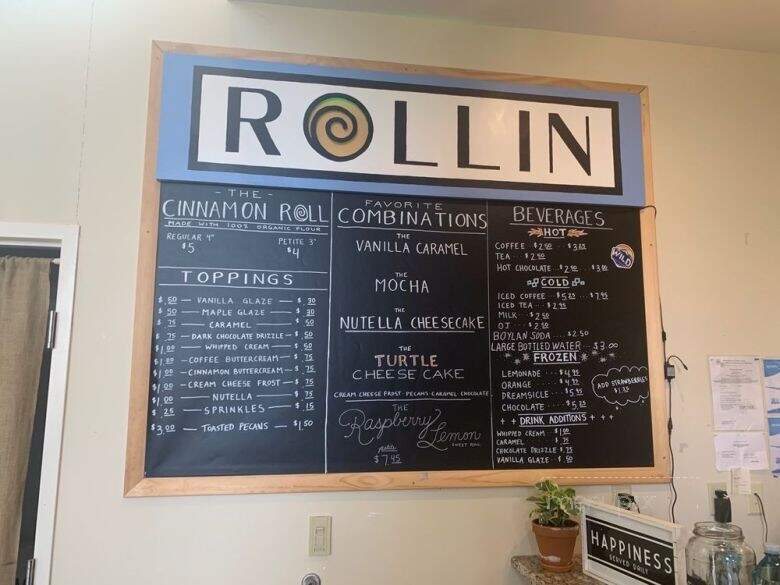 ROLLIN
- THE -
CINNAMON ROLL
MADE WITH 100% ORGANIC FLOUR
REGULAR 4" PETITE 3"
$5 $4
TOPPINGS
$.50 - VANILLA GLAZE - $.30
$.50 - MAPLE GLAZE - $.30
$.75 - CARAMEL - $.50
$.75 - DARK CHOCOLATE DRIZZLE - $.50
$1.00 - WHIPPED CREAM - $.50
$1.00 - COFFEE BUTTERCREAM - $.75
$1.00 - CINNAMON BUTTERCREAM - $.75
$1.00 - CREAM CHEESE FROST - $.75
$1.00 - NUTELLA - $.75
$.25 - SPRINKLES - $.15
$3.00 - TOASTED PECANS - $1.50
FAVORITE
COMBINATIONS
THE
VANILLA CARAMEL
THE
MOCHA
THE
NUTELLA CHEESECAKE
THE
TURTLE
CHEESE CAKE
CREAM CHEESE FROST-PECANS-CARAMEL-CHOCOLATE
THE
Raspberry Lemon
SWEET ROLL
petite
$7.45
BEVERAGES
HOT
COFFEE $2.50 $3.25
TEA $2.50
HOT CHOCOLATE $2.50 $3.00
WILD
COLD
ICED COFFEE $5.25 $7.95
ICED TEA $2.95
MILK $2.50
OJ $2.50
BOYLAN SODA $2.50
LARGE BOTTLED WATER $3.00
FROZEN
LEMONADE $4.95
ORANGE $4.95
DREAMSICLE $5.95
CHOCOLATE $5.25
ADD STRAWBERRIES
$1.25
+ + DRINK ADDITIONS + +
WHIPPED CREAM $1.00
CARAMEL $.75
CHOCOLATE DRIZZLE $.75
VANILLA GLAZE $.50
HAPPINESS
SERVED DAILY